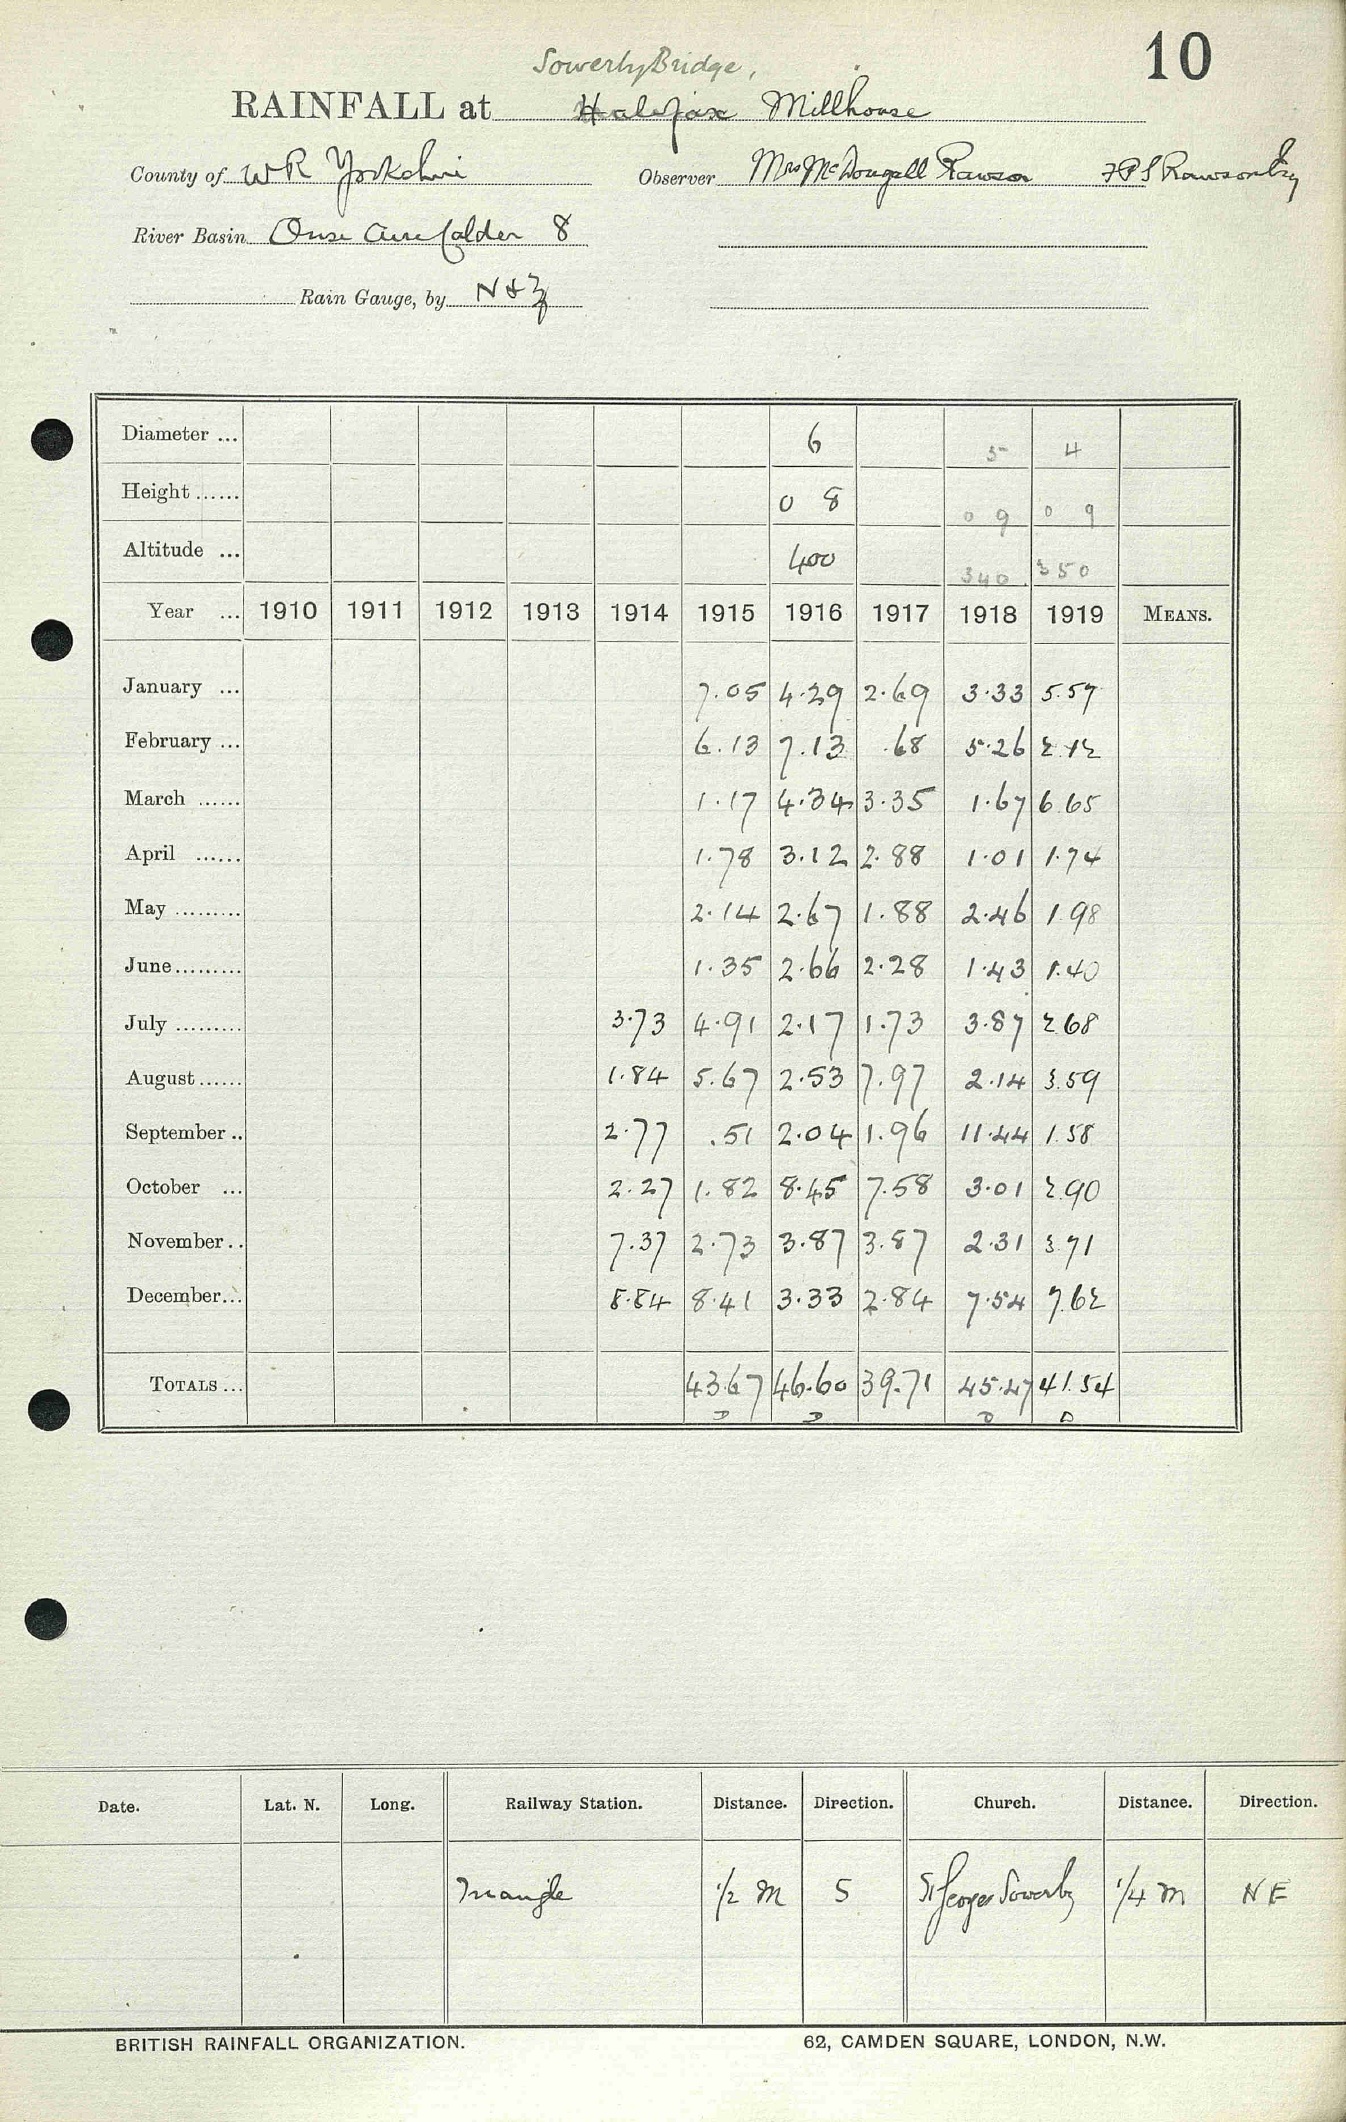 10
Sowerby Bridge,
RAINFALL at Halifax Millhouse
County of W R Yorkshire Observer Mrs McDougall Rawson F P S Rawson Esq
River Basin Ouse Aire Calder 8
Rain Gauge, by N & Z
Diameter ... 6 5 4
Height ...... 0 8 0 9 0 9
Altitude ... 400 340 350
Year ... 1910 1911 1912 1913 1914 1915 1916 1917 1918 1919 MEANS.
January ... 7.05 4.29 2.69 3.33 5.57
February ... 6.13 7.13 .68 5.26 2.12
March ...... 1.17 4.34 3.35 1.67 6.65
April ...... 1.78 3.12 2.88 1.01 1.74
May ......... 2.14 2.67 1.88 2.46 1.98
June......... 1.35 2.66 2.28 1.43 1.40
July ......... 3.73 4.91 2.17 1.73 3.87 2.68
August...... 1.84 5.67 2.53 7.97 2.14 3.59
September .. 2.77 .51 2.04 1.96 11.44 1.58
October ... 2.27 1.82 8.45 7.58 3.01 2.90
November.. 7.37 2.73 3.87 3.87 2.31 3.71
December... 8.84 8.41 3.33 2.84 7.54 7.62
TOTALS ... 43.67 46.60 39.71 45.47 41.54
D D D D
Date. Lat. N. Long. Railway Station. Distance. Direction. Church. Distance. Direction.
Triangle 1/2 M S St Georges Sowerby 1/4 M NE
BRITISH RAINFALL ORGANIZATION. 62, CAMDEN SQUARE, LONDON, N.W.